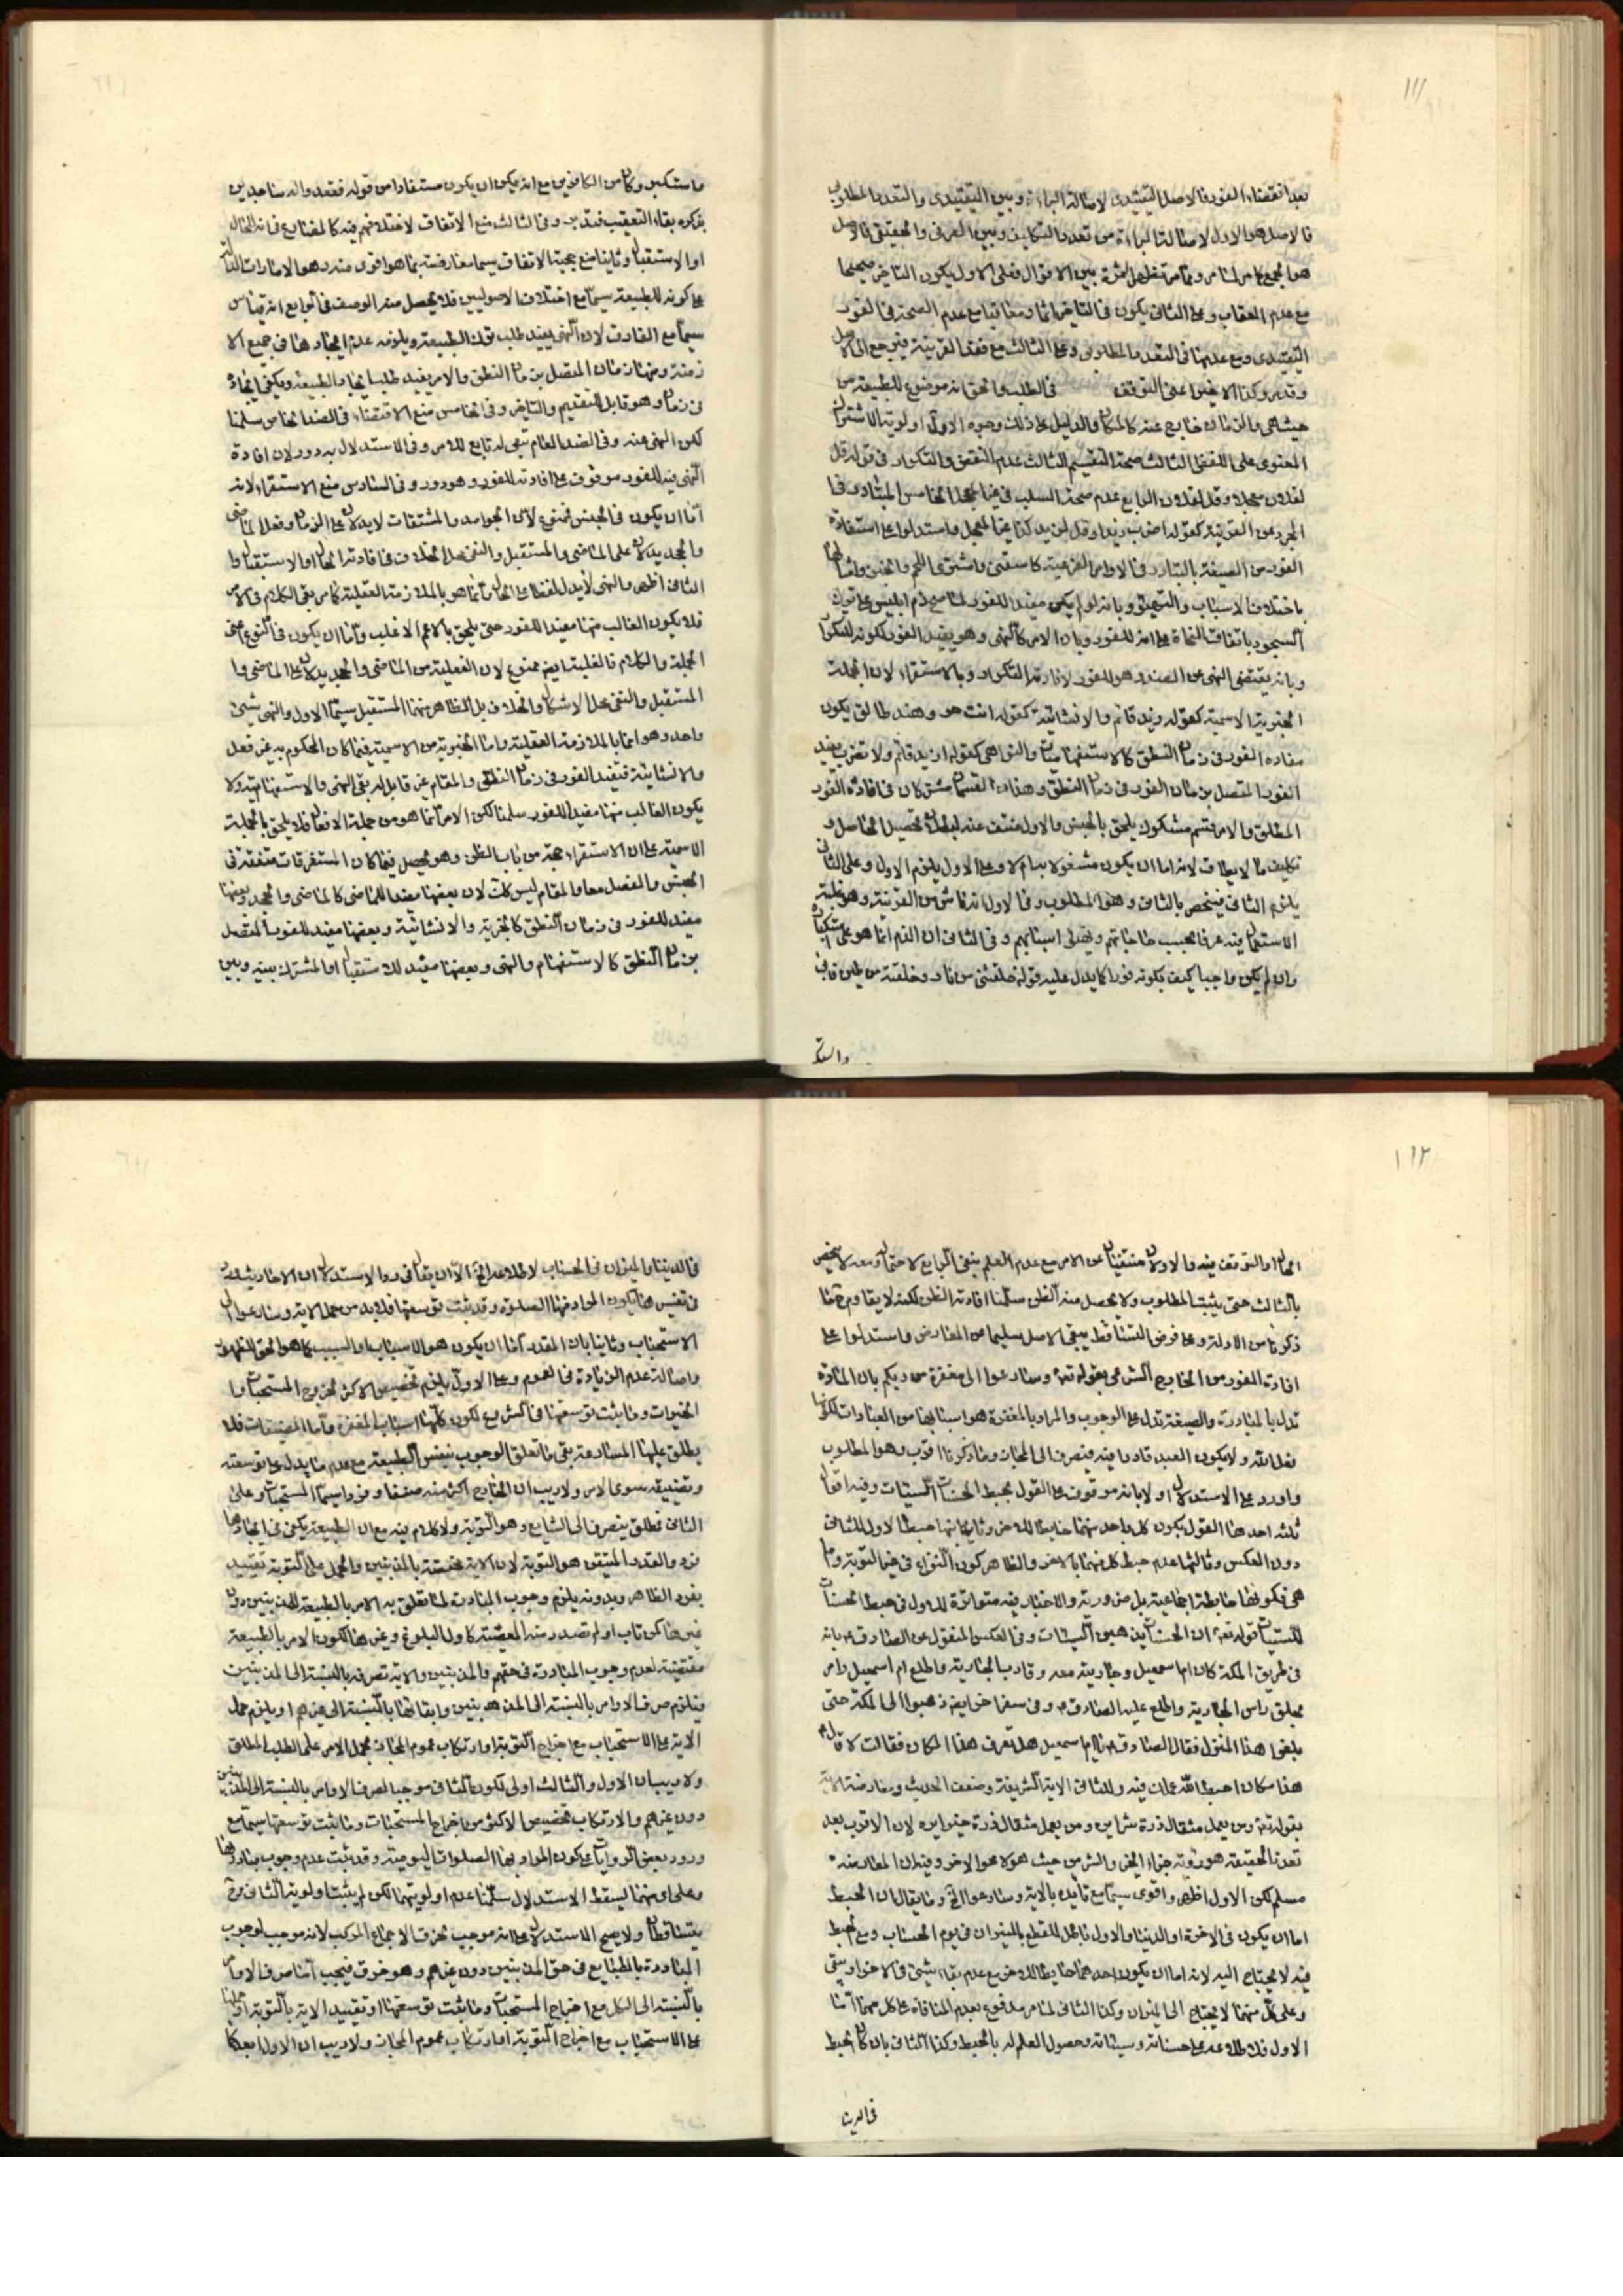 ١١١
بعد انقضاء الفور فالاصل التقييدى لاصالة البراءة وبين التقييدى والتعدد المطلوبى
فالاصل هو الاول لاصالة البراءة من تعدد التكليف وبين العرفى والحقيقى فالاصل
هو الاول يكون التاخير صحيحا
مع عدم العقاب وعلى الثانى يكون فى التاخير اثما ومعاقبا مع عدم الصحة فى الفور
التقييدى ومع عدمها فى التعدد المطلوبى وعلى الثالث مع فقد القرينة فيرجع الى الاصل
فى الطلب والحق انه موضوع للطبيعة من
حيث هى والزمان خارج عنه كالمكان والدليل على ذلك وجوه الاول اولوية الاشتراك
المعنوى على اللفظى الثالث صحة التقسيم الثالث عدم التناقض والتكرار فى قوله قل
لفلان عجلا وقل لفلان الرابع عدم صحة السلب الخامس التبادر فى
المجرد عن القرينة كقوله اضرب زيدا واستدلوا على استفادة
الفور من الصيغة بالتبادر فى الاوامر العرفية كاسقنى واشترى اللحم
باختلاف الاسباب وبانه لو لم يكن مفيد للفور لما صح ذم ابليس على ترك
السجود باتفاق النحاة على انه للفور وبان الامر كالنهى وهو يفيد الفور لكونه للتكرار
وبانه يقتضى النهى عن الضد وهو للفور لافادته التكرار وبالاستقراء لان الجملة
الخبرية الاسمية كقوله زيد قائم والانشائية كقوله انت حر وهند طالق يكون
مفاده الفور فى زمان النطق كالاستفهاميات والنواهى كقوله ازيد قائم ولا تضرب يفيد
الفور المتصل بزمان الفور فى زمان النطق وهذان القسمان مشتركان فى افادة الفور
المطلق والامر قسم مشكوك يلحق بالجنس والاول منتف عنه لبطلان تحصيل الحاصل و
تكليف ما لا يطاق لانه اما ان يكون مشغولا بيام لا وعلى الاول يلزم الاول وعلى الثانى
يلزم الثانى فينحصر بالثانى وهو المطلوب وفى الاول انه ناش من القرينة وهو غلبة
الاستعمال فيه عرفا بحسب حاجاتهم وفى الثانى ان الذم انما هو على استكباره
وان لم يكن واجبا كيف بكونه فورا كما يدل عليه قوله خلقتنى من نار وخلقته من طين فابى
واستكبر وكان من الكافرين مع انه يمكن ان يكون مستفادا من قوله فقعوا له ساجدين
بذكره بفاء التعقيب فتدبر وفى الثالث منع الاتفاق لاختلافهم فيه كالمضارع فانه للحال
او الاستقبال وثانيا منع حجية الاتفاق سيما معارضته بما هو اقوى منه وهو الامارات الدالة
على كونه للطبيعة سيما مع اختلاف الاصوليين فلا يحصل منه الوصف وفى الرابع انه قياس
سيما مع الفارق لان النهى يفيد طلب ترك الطبيعة ويلزمه عدم ايجادها فى جميع الا
زمنة ومنها زمان المتصل بزمان النطق والامر يفيد طلب ايجاد الطبيعة ويكفى ايجاده
فى زمان وهو قابل للتقديم والتاخير وفى الخامس منع الاقتضاء فى الضد الخاص سلمنا
لكن النهى عنه وفى الضد العام تبعى له تابع للامر وفى الاستدلال به دور لان افادة
النهى فيه للفور موقوف على افادته للفور وهو دور وفى السادس منع الاستقراء لانه
اما ان يكون فى الجنس فممنوع لان الجوامد والمشتقات لا يدلان على الزمان وفعل الماضى
والجحد يدلان على الماضى والمستقبل والنفى محل الخلاف فى افادته الحال او الاستقبال وا
الثانى اظهر والنهى لا يدل لفظا على الحال وانما هو بالملازمة العقلية كما مر بقى الكلام فى الامر
فلا يكون الغالب منها مفيدا للفور حتى يلحق بالاعم الاغلب واما ان يكون فى النوع اعنى
الجملة والكلام فالغلبة ايضا ممنوع لان الفعلية من الماضى والجحد يدلان على الماضى وا
المستقبل والنفى محل الاشكال والخلاف بل الظاهر منهما المستقبل سيما الاول والنهى شىء
واحد وهو انما بالملازمة العقلية واما الخبرية من الاسمية فيما كان المحكوم به غير فعل
والانشائية فيفيد الفور فى زمان النطق والمقام غير قابل له بقى النهى والاستفهامية ولا
يكون الغالب منها مفيدا للفور سلمنا لكن الامر انما هو من جملة الافعال فلا يلحق بالجملة
الاسمية على ان الاستقراء حجة من باب الظن وهو يحصل فيما كان المستقرات متفقة فى
الجنس والفصل معا والمقام ليس كذلك لان بعضها مفيد للماضى كالماضى والجحد وبعضها
مفيد للفور فى زمان النطق كالخبرية والانشائية وبعضها مفيد للفور المتصل
بزمان النطق كالاستفهام والنهى وبعضها مفيد للاستقبال او المشترك بينه وبين
١١٢
الحال او التوقف فيه والاولان منتفيان عن الامر مع عدم العلم
بالثالث حتى يثبت المطلوب ولا يحصل منه الظن سلمنا افادته الظن لكنه لا يقاوم ما
ذكرنا من الادلة وعلى فرض التساقط يبقى الاصل سليما عن المعارض واستدلوا على
افادته الفور من الخارج الشرعى بقوله تعالى وسارعوا الى مغفرة من ربكم بان المادة
تدل بالمبادرة والصيغة تدل على الوجوب والمراد بالمغفرة هو اسبابها من العبادات لكونها
فعل الله ولا يكون العبد قادرا فيه فينصرف الى المجاز وما ذكرنا اقرب وهو المطلوب
واورد على الاستدلال اولا بانه موقوف على القول بحبط الحسنات السيئات وفيه اقوال
ثلثة احدها القول بكون كل واحد منهما حابطا للاخر وثانيها حبط الاول للثانى
دون العكس وثالثها عدم حبط كل منهما بالاخر والظاهر كون النزاع فى غير التوبة واما
هى فكونها حابطة اجماعية بل ضرورية والاخبار فيه متواترة للاول فى حبط الحسنات
للسيئات قوله تعالى ان الحسنات يذهبن السيئات وفى العكس المنقول عن الصادق بانه
فى طريق المكة كان ام اسمعيل وجارية معه وقارب الجارية واطلع ام اسمعيل وامر
بحلق راس الجارية واطلع عليه الصادق وفى سفر اخر ايضا ذهبوا الى المكة حتى
بلغوا هذا المنزل فقال الصادق يا ام اسمعيل هل تعرف هذا المكان فقالت لا قال
هذا مكان احبط الله عملك فيه وللثانى الاية الشريفة وضعف الحديث ومعارضة الاية
بقوله تعالى ومن يعمل مثقال ذرة شرا يره ومن يعمل مثقال ذرة خيرا يره لان الاقرب بعد
تعذر الحقيقة هو رؤية جزاء الخير والشر من حيث هو لا محو الاخر وفيه ان المعارضة
مسلم لكن الاول اظهر واقوى سيما مع تأيده بالاية وسارعوا الخ وما يقال ان الحبط
اما ان يكون فى الاخرة او الدنيا والاول باطل للقطع بالميزان فى يوم الحساب ومع الحبط
فيه لا يحتاج اليه لانه اما ان يكون احدهما حابطا للاخر مع عدم بقاء شىء فى الاخر او بقى
وعلى كل منهما لا يحتاج الى الميزان وكذا الثانى لما مر مدفوع بعدم المنافاة على كل منهما اما
الاول فلاطلاعه على حسناته وسيئاته وحصول العلم له بالحبط وكذا الثانى بان كان الحبط
فى الدنيا
فى الدنيا والميزان فى الحساب لاطلاعه الخ الا ان يقال فى رد الاستدلال ان الاخبار
فى تفسير هذا بكون المراد منها الصلوة وقد يثبت توسعتها فلا بد من حمل الاية وسارعوا الى
الاستحباب وثانيا بان المقدر اما ان يكون هو الاسباب او السبب كما هو الحق
واصالة عدم الزيادة فى العموم وعلى الاول يلزم تخصيص الاكثر لخروج المستحبات وا
الخيرات وما يثبت توسعتها فى الشرع لكون كلها اسباب المغفرة واما المضيقات فلا
يطلق عليها المسارعة بقى ما تعلق الوجوب بنفس الطبيعة مع عدم ما يدل على توسعته
وتضييقه سوى الامر ولا ريب ان الخارج اكثر منه صنفا وفردا سيما المستحبات وعلى
الثانى مطلق ينصرف الى الشايع وهو التوبة ولا كلام فيه مع ان الطبيعة يكفى فى ايجادها
فرد والقدر المتيقن هو التوبة لان الاية مختصة بالمذنبين والحمل على التوبة تقييد
بفرد الظاهر وبدونه يلزم وجوب المبادرة لما تعلق به الامر بالطبيعة للمذنبين دون
غيرها كمن تاب او لم تصدر منه المعصية كاول البلوغ وغيرها لكون الامر بالطبيعة
مقتضية لعدم وجوب المبادرة فى حقهم والمذنبين والاية تصرف بالنسبة الى المذنبين
فيلزم صرف الاوامر بالنسبة الى المذنبين وابقائها بالنسبة الى غيرهم او يلزم حمل
الاية على الاستحباب مع اخراج التوبة او ارتكاب عموم المجاز بحمل الامر على الطلب المطلق
ولا ريب ان الاول والثالث اولى لكون الثانى موجبا لصرف الاوامر بالنسبة الى المذنبين
دون غيرهم والارتكاب تخصيص الاكثر من اخراج المستحبات وما يثبت توسعتها سيما مع
ورود بعض الروايات بكون المراد بها الصلوات اليومية وقد ثبت عدم وجوب مبادرتها
وعلى اى منهما يسقط الاستدلال سلمنا عدم اولويتهما لكن لم يثبت اولوية الثانى
يتساقطان ولا يصح الاستدلال على انه موجب لخرق الاجماع المركب لانه موجب لوجوب
المبادرة بالطبايع فى حق المذنبين دون غيرهم وهو خرق فيجب اما صرف الاوامر
بالنسبة الى الكل مع اخراج المستحبات وما يثبت توسعتها او تقييد الاية بالتوبة او حملها
على الاستحباب مع اخراج التوبة او ارتكاب عموم المجاز ولا ريب ان الاول ابعد